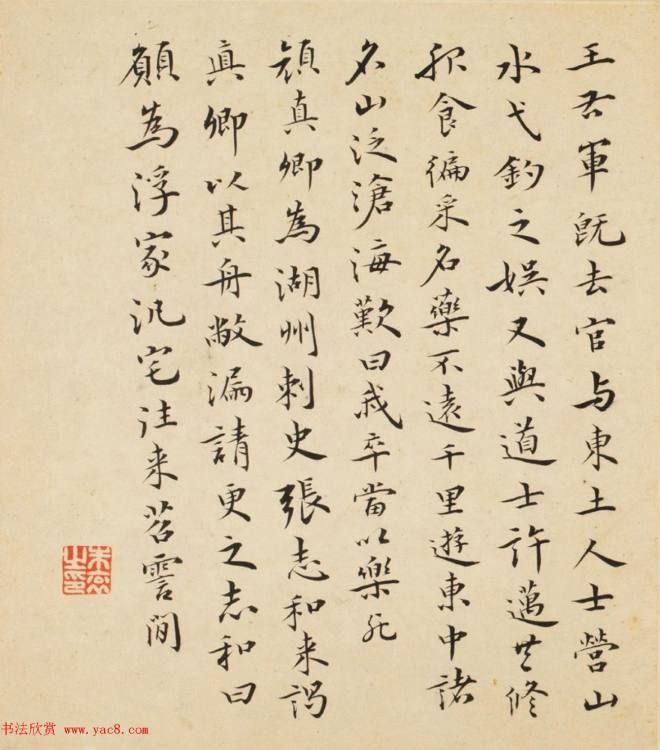 王右軍既去官与東土人士營山
水弋釣之娛又與道士許邁共修
服食徧采名藥不遠千里遊東中諸
名山泛滄海歎曰我卒當以樂死
顔真卿為湖州刺史張志和来謁
真卿以其舟敝漏請更之志和曰
願為浮家汎宅往来苕霅間
朱耷之印
书法欣赏 www.yac8.com